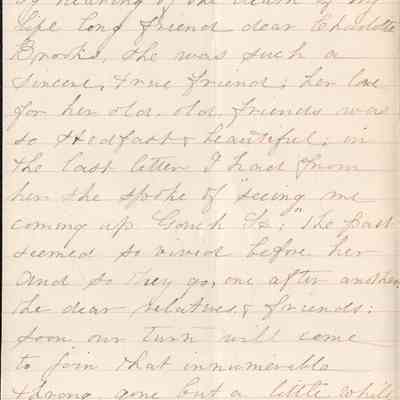 by hearing of the death of my
life long friend dear Charlotte
Brooks, she was such a
sincere, true friend; her love
for her old, old friends was
so stedfast & beautiful; in
the last letter I had from
her she spoke of "seeing me
coming up Gouch St:" the past
seemed so vivid before her
And so they go, one after another,
the dear relatives & friends;
soon our turn will come
to join that innumerable
throng, gone but a little while